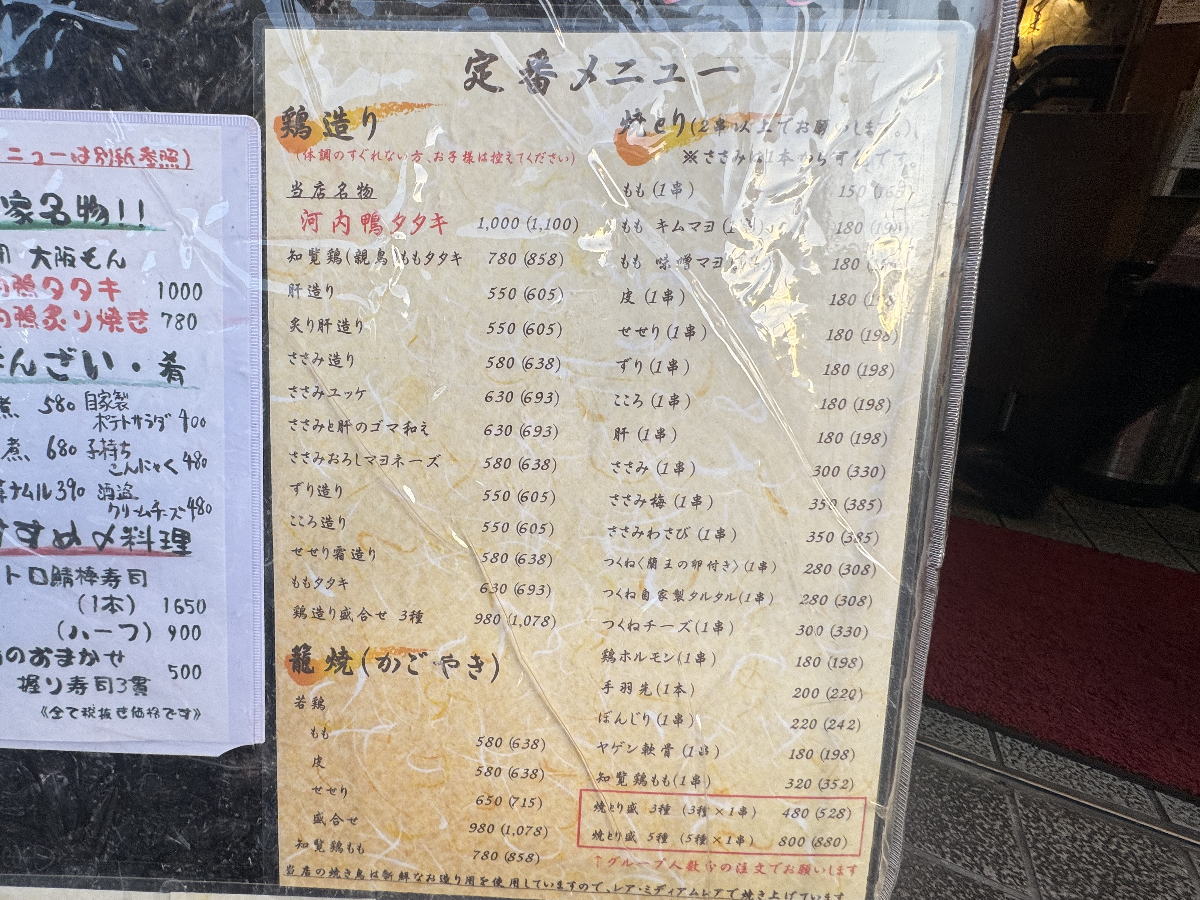 ニューは別紙参照)
家名物!!
大阪もん
鴨タタキ 1000
鴨炙り焼き 780
んざい・肴
煮 580 自家製
ポテトサラダ 400
煮 680 子持ち
こんにゃく 480
ナムル 390 酒盗
クリームチーズ 480
すすめ〆料理
トロ鯖棒寿司
(1本) 1650
(ハーフ) 900
のおまかせ
握り寿司3貫 500
《全て税抜き価格です》
定番メニュー
鶏造り
(体調のすぐれない方、お子様は控えてください)
当店名物
河内鴨タタキ 1,000 (1,100)
知覧鶏(親鳥)ももタタキ 780 (858)
肝造り 550 (605)
炙り肝造り 550 (605)
ささみ造り 580 (638)
ささみユッケ 630 (693)
ささみと肝のゴマ和え 630 (693)
ささみおろしマヨネーズ 580 (638)
ずり造り 550 (605)
こころ造り 550 (605)
せせり霜造り 580 (638)
ももタタキ 630 (693)
鶏造り盛合せ 3種 980 (1,078)
籠焼(かごやき)
若鶏
もも 580 (638)
皮 580 (638)
せせり 650 (715)
盛合せ 980 (1,078)
知覧鶏もも 780 (858)
焼とり(2串以上でお願いします。)
※ささみは1本から可能です。
もも (1串) 150 (165)
もも キムマヨ (1串) 180 (198)
もも 味噌マヨ 180
皮 (1串) 180 (198)
せせり (1串) 180 (198)
ずり (1串) 180 (198)
こころ (1串) 180 (198)
肝 (1串) 180 (198)
ささみ (1串) 300 (330)
ささみ梅 (1串) 350 (385)
ささみわさび (1串) 350 (385)
つくね〈蘭王の卵付き〉(1串) 280 (308)
つくね自家製タルタル(1串) 280 (308)
つくねチーズ(1串) 300 (330)
鶏ホルモン(1串) 180 (198)
手羽先(1本) 200 (220)
ぼんじり(1串) 220 (242)
ヤゲン軟骨 (1串) 180 (198)
知覧鶏もも(1串) 320 (352)
焼とり盛 3種 (3種×1串) 480 (528)
焼とり盛 5種 (5種×1串) 800 (880)
↑グループ人数分の注文でお願いします
当店の焼き鳥は新鮮なお造り用を使用していますので、レア・ミディアムレアで焼き上げています